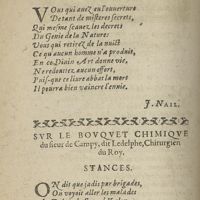 Vous qui avez eu l'ouverture
De tant de misteres secrets,
Qui mesme sçavez les decrets
Du Genie de la Nature:
Vous qui retirez de la nuict
Ce qu'aucun homme n'a produit,
En ce Diuin Art donne vie,
Ne redoutez aucun effort,
Puis-que ce liure abbat la mort
Il pourra bien vaincre l'ennie.
SVR LE BOVQVET CHIMIQVE
du sieur de Campy, dit Ledelphe, Chirurgien
du Roy.
STANCES.
ON dit que jadis par brigades,
On voyoit aller les malades